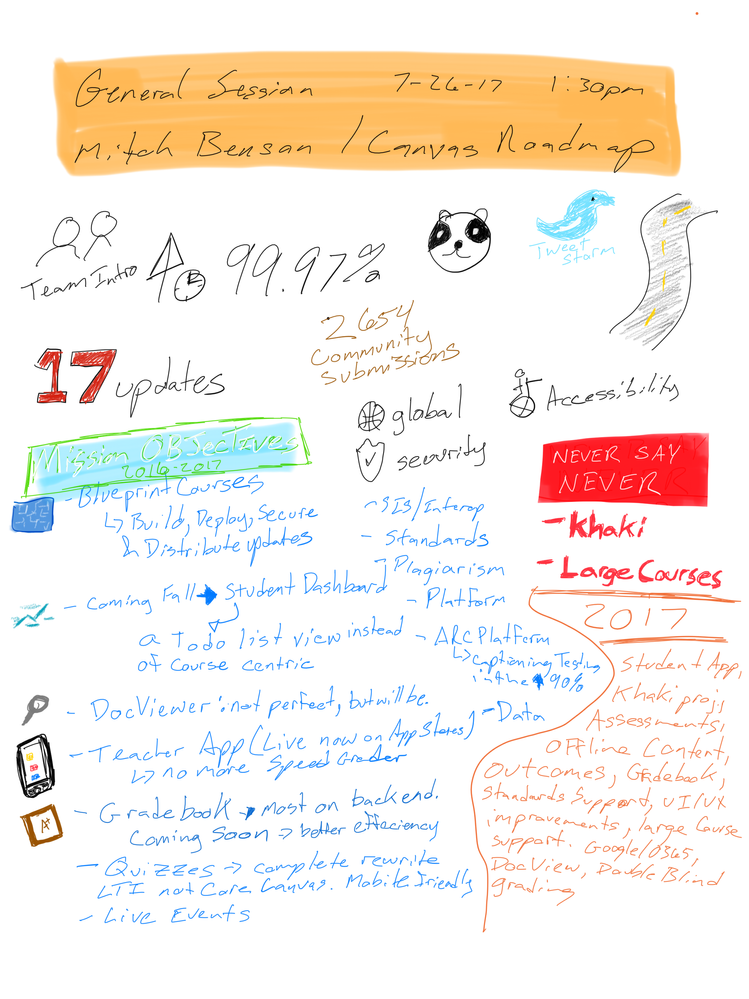 General Session 7-26-17 1:30pm
Mitch Benson / Canvas Roadmap
Team Intro
99.97%
Tweet
Storm
2654
Community
Submissions
17 updates
global
security
Accessibility
Mission OBJectives
2016-2017
NEVER SAY
NEVER
- Khaki
- Large Courses
- Blueprint Courses
↳ Build, Deploy, Secure
& Distribute updates
- Coming Fall → Student Dashboard
a Todo list view instead
of Course centric
- DocViewer: not perfect, but will be.
- Teacher App (Live now on App Stores)
↳ no more Speed Grader
- Gradebook → Most on backend.
Coming Soon → better effeciency
- Quizzes → complete rewrite
LTI not Core Canvas. Mobile friendly
- Live Events
- SIS/Interop
- Standards
- Plagiarism
- Platform
- ARC Platform
↳ Captioning Testing
in the 90%
- Data
2017
Student App,
Khaki proj,
Assessments,
Offline Content,
Outcomes, Gradebook,
Standards Support, UI/UX
improvements, large Course
support. Google/O365,
DocView, Double Blind
grading
A+